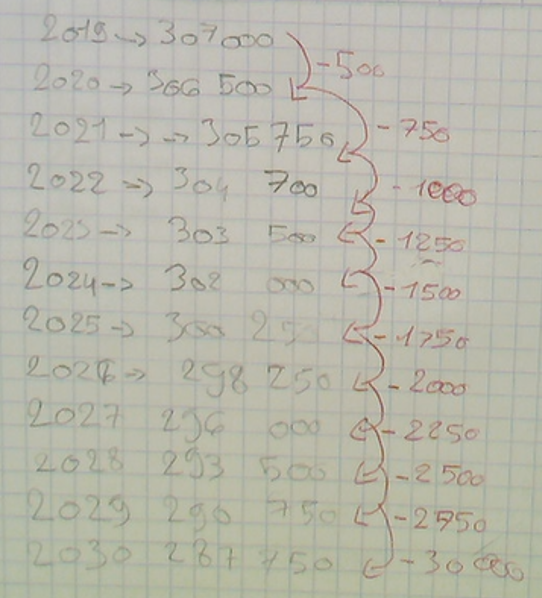 2019 → 307000
-500
2020 → 306 500
-750
2021 → → 305 750
-1000
2022 → 304 700
-1250
2023 → 303 500
-1500
2024 → 302 000
-1750
2025 → 300 25
-2000
2026 → 298 250
-2250
2027 296 000
-2500
2028 293 500
-2750
2029 290 750
-30000
2030 287 750